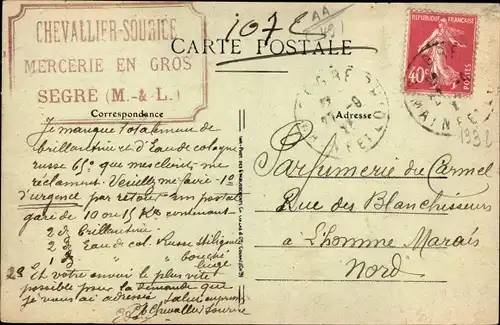 CHEVALLIER-SOURICE
MERCERIE EN GROS
SEGRÉ (M.-&-L.)
107 C
AA
CARTE POSTALE
REPUBLIQUE FRANÇAISE
40c
POSTES
1932
Correspondance
Adresse
Je manque totalement de
brillantine d'Eau de cologne
russe 65° que mes clients me
réclament. Veuillez me faire
d'urgence par retour un postal
gare de 10 ou 15 Ks contenant
2 d Brillantine
2 d Eau de col. Russe stiligoutte
1 d " " bouché
liège
Et votre envoi le plus vite
possible pour la demande que
je vous ai adressée Salut empressé
Chevallier Sourice
Parfumerie du Carmel
Rue des Blanchisseurs
à Lhomme Marais
Nord